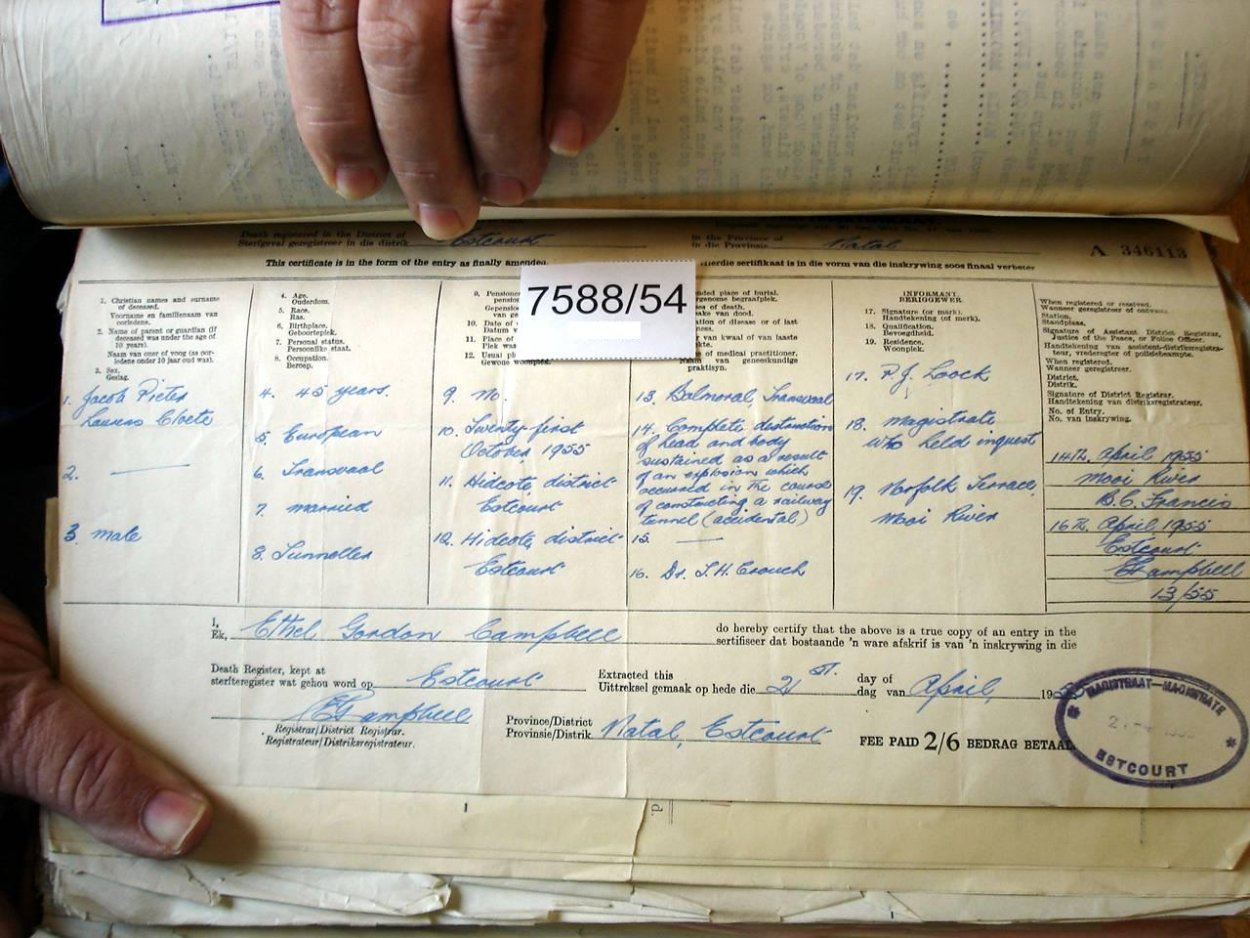 Death registered in the District of
Sterfgeval geregistreer in die distrik Estcourt
in the Province of
in die Provinsie Natal
A 346113
This certificate is in the form of the entry as finally amended.
Hierdie sertifikaat is in die vorm van die inskrywing soos finaal verbeter
7588/54
1. Christian names and surname
of deceased.
Voorname en familienaam van
oorledene.
2. Name of parent or guardian (if
deceased was under the age of
10 years).
Naam van ouer of voog (as oor-
ledene onder 10 jaar oud was).
3. Sex.
Geslag.
1. Jacob Pieter
Laurens Cloete
2. —
3. male
4. Age.
Ouderdom.
5. Race.
Ras.
6. Birthplace.
Geboorteplek.
7. Personal status.
Persoonlike staat.
8. Occupation.
Beroep.
4. 45 years.
5. European
6. Transvaal
7. married
8. Tunneller
9. Pensioner
pensioen
Gepensioen
van ge
10. Date of
Datum v
11. Place of
Plek wa
12. Usual pl
Gewone woonplek.
9. No.
10. Twenty-first
October 1955
11. Hidcote, district
Estcourt
12. Hidcote, district
Estcourt
nded place of burial.
rgenome begraafplek.
es of death.
ake van dood.
ation of disease or of last
r van kwaal of van laaste
e of medical practitioner.
Naam van geneeskundige
praktisyn.
13. Balmoral Transvaal
14. Complete destruction
of head and body
sustained as a result
of an explosion which
occurred in the course
of constructing a railway
tunnel (accidental)
15. —
16. Dr. T.H. Crouch
INFORMANT.
BERIGGEWER.
17. Signature (or mark).
Handtekening (of merk).
18. Qualification.
Bevoegdheid.
19. Residence.
Woonplek.
17. P.J. Loock
18. Magistrate
who held inquest
19. Norfolk Terrace,
Mooi River
When registered or received.
Wanneer geregistreer of ontvang.
Station.
Standplaas.
Signature of Assistant District Registrar,
Justice of the Peace, or Police Officer.
Handtekening van assistent-distriksregistra-
teur, vrederegter of polisiebeampte.
When registered.
Wanneer geregistreer.
District.
Distrik.
Signature of District Registrar.
Handtekening van distriksregistrateur.
No. of Entry.
No. van inskrywing.
14th. April 1955
Mooi River
B.C. Francis
16th. April 1955
Estcourt
EGCampbell
13/55
I,
Ek, Ethel Gordon Campbell
do hereby certify that the above is a true copy of an entry in the
sertifiseer dat bostaande 'n ware afskrif is van 'n inskrywing in die
Death Register, kept at
sterfteregister wat gehou word op Estcourt
Extracted this
Uittreksel gemaak op hede die 21st.
day of
dag van April 19
EGCampbell
Registrar/District Registrar.
Registrateur/Distriksregistrateur.
Province/District
Provinsie/Distrik. Natal, Estcourt
FEE PAID 2/6 BEDRAG BETAAL
MAGISTRAAT—MAGISTRATE
ESTCOURT